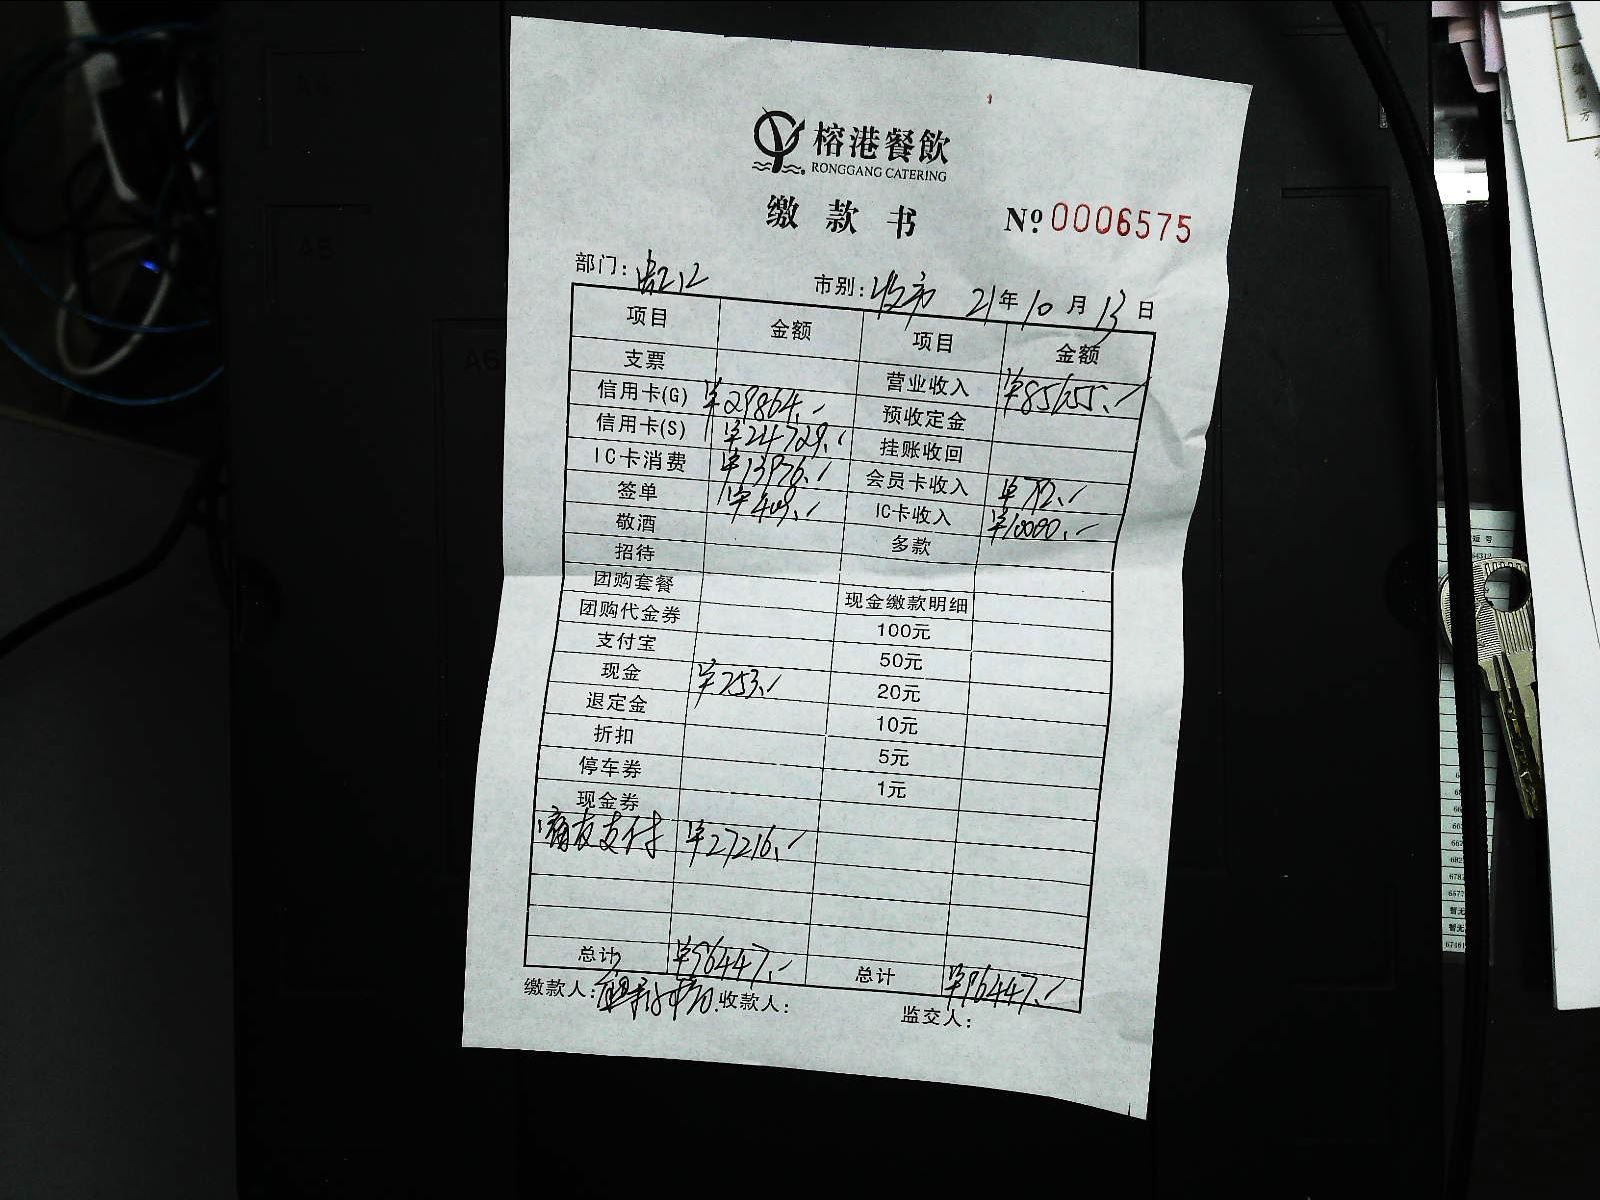 榕港餐飲
RONGGANG CATERING
缴款书 Nº 0006575
部门: 虹口 市别: 收市 21年10月13日
项目 金额 项目 金额
支票 营业收入 ¥85655.-
信用卡(G) ¥29864.- 预收定金
信用卡(S) ¥24729.- 挂账收回
IC卡消费 ¥13976.- 会员卡收入 ¥792.-
签单 ¥409.- IC卡收入 ¥10000.-
敬酒 多款
招待
团购套餐 现金缴款明细
团购代金券 100元
支付宝 50元
现金 ¥253.- 20元
退定金 10元
折扣 5元
停车券 1元
现金券
支付 ¥27216.-
总计 ¥96447.- 总计 ¥96447.-
缴款人: 收款人: 监交人: